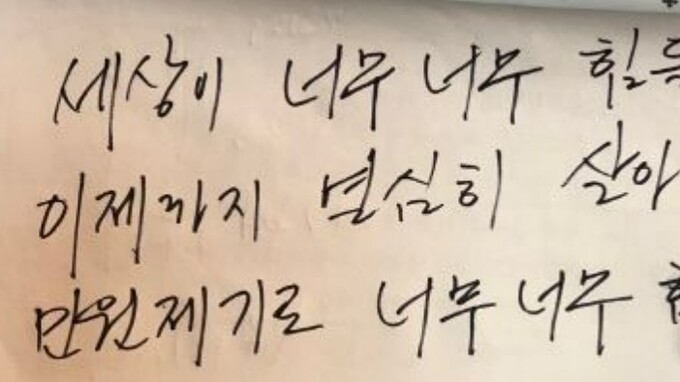 세상이 너무 너무 힘드
이제까지 열심히 살아
만원제기로 너무 너무